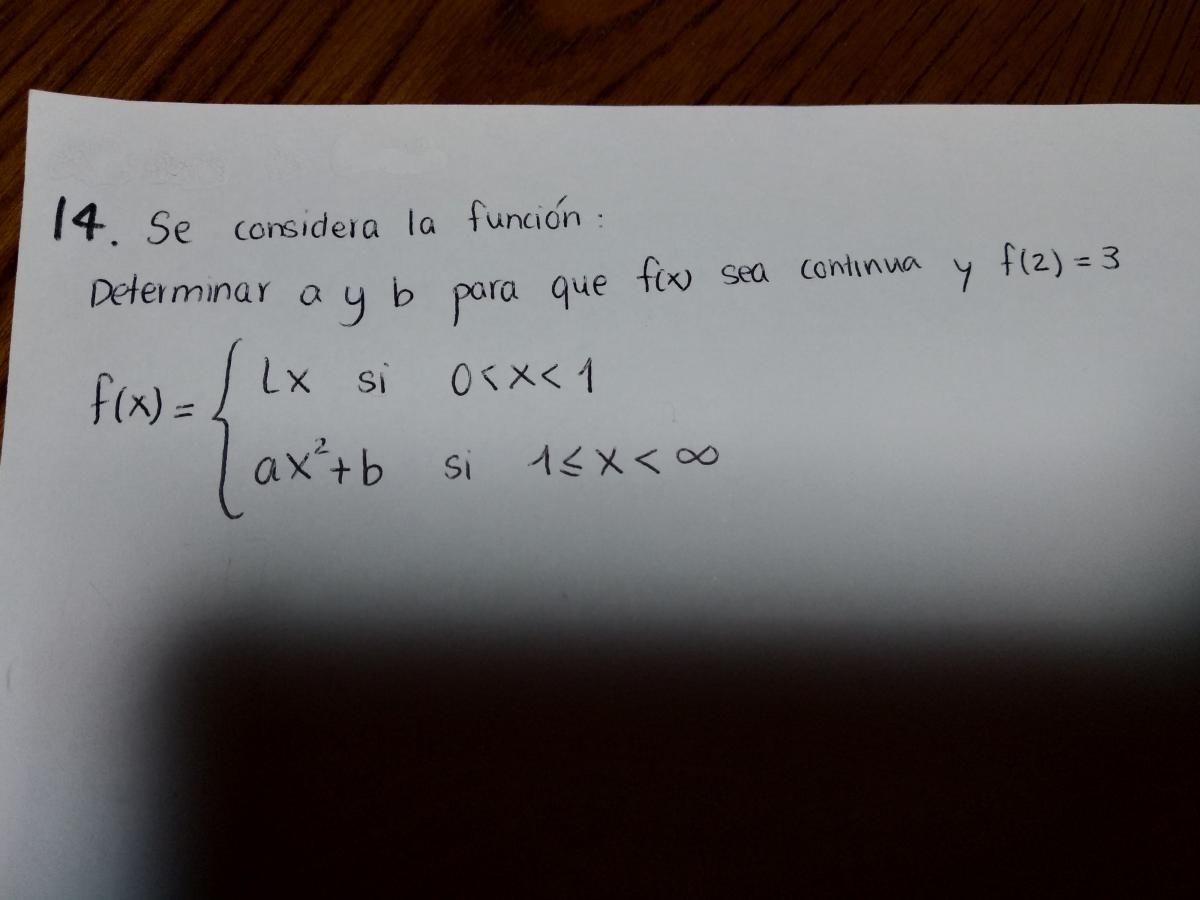 14. Se considera la función:
Determinar a y b para que f(x) sea continua y f(2) = 3
f(x) = { Lx si 0 < x < 1
ax² + b si 1 ≤ x < ∞